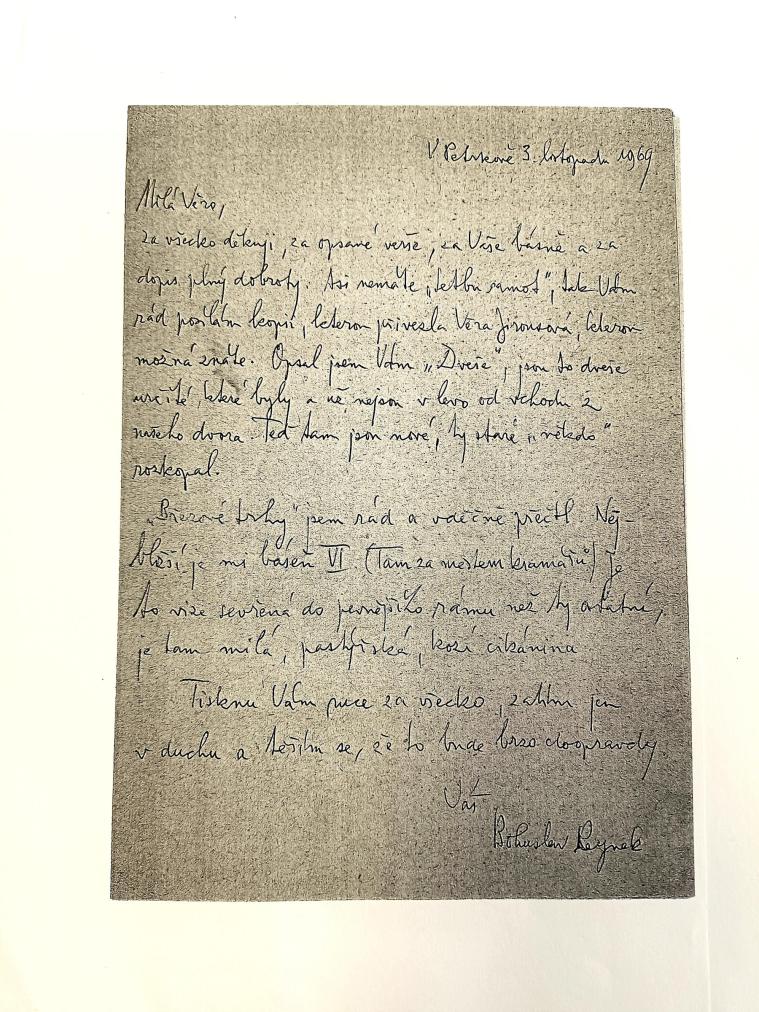 V Petrkově 3. listopadu 1969
Milá Věro,
za všecko děkuji, za opsané verše, za Vaše básně a za
dopis plný dobroty. Asi nemáte „setbu samot“, tak Vám
rád posílám kopii, kterou přivezla Věra Jirousová, kterou
možná znáte. Opsal jsem Vám „Dveře“, jsou to dveře
určité, které byly a už nejsou v levo od vchodu z
našeho dvora. Teď tam jsou nové, ty staré „někdo“
rozkopal.
„Březové trhy“ jsem rád a vděčně přečtl. Nej-
bližší je mi báseň VI (Tam za městem kramářů) je
to vize sevřená do pevnějšího rámu než ty ostatní,
je tam milá, pastýřská, kozí cikánina
Tisknu Vám ruce za všecko, zatím jen
v duchu a těším se, že to bude brzo doopravdy.
Váš
Bohuslav Reynek